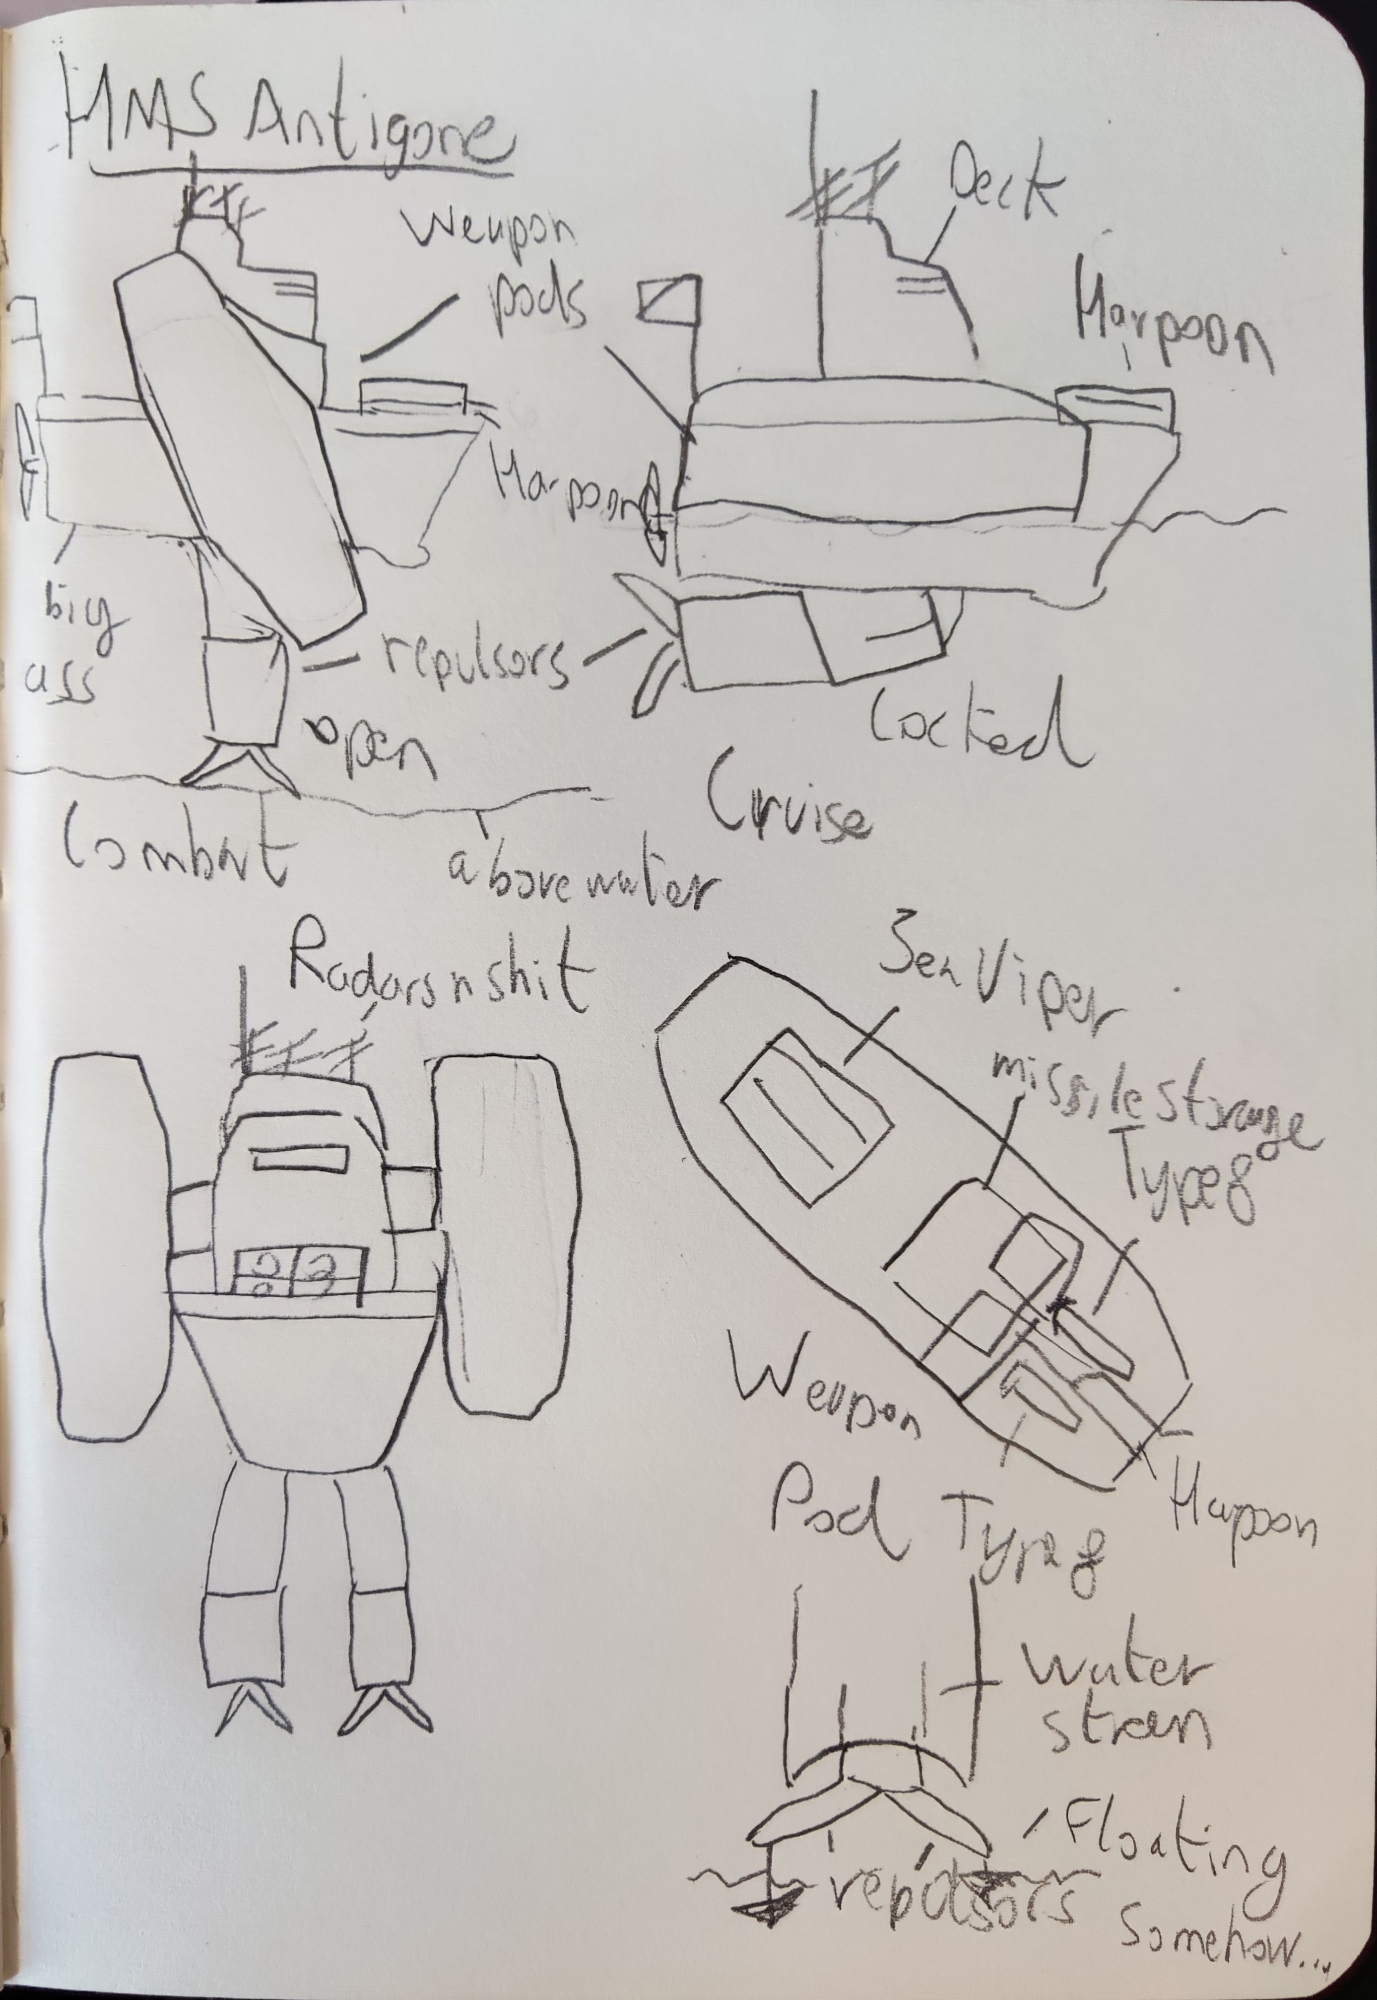 HMS Antigone
Weapon
pods
Deck
Harpoon
Harpoon
big
ass
repulsors
open
Locked
Combat
Cruise
above water
Radars n shit
Sea Viper
missile storage
Type 8
Weapon
Pod
Type 8
Harpoon
water
stream
Floating
repulsors
Somehow...